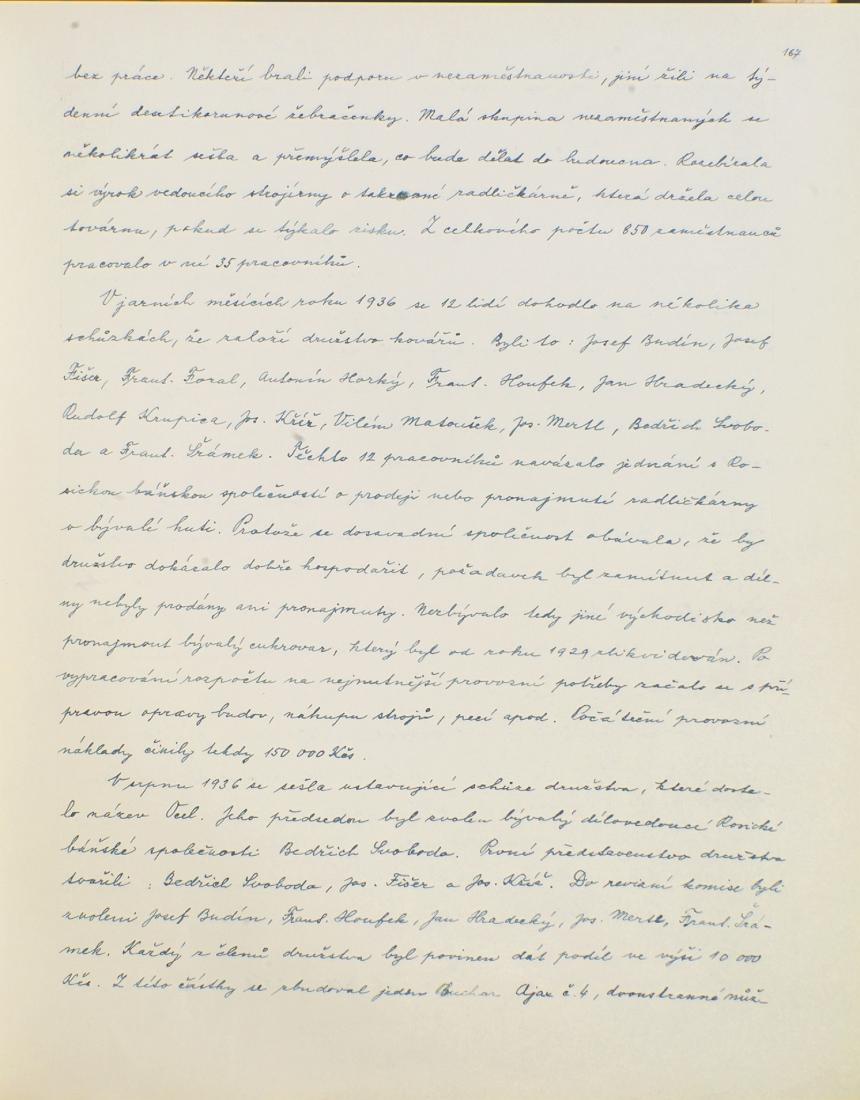 167
bez práce. Někteří brali podporu v nezaměstnanosti, jiní žili na tý-
denní desetikorunové žebračenky. Malá skupina nezaměstnaných se
několikrát sešla a přemýšlela, co bude dělat do budoucna. Rozebírala
si výrok vedoucího strojírny o takzvané radličkárně, která držela celou
továrnu, pokud se týkalo zisku. Z celkového počtu 650 zaměstnanců
pracovalo v ní 35 pracovníků.
V jarních měsících roku 1936 se 12 lidí dohodlo na několika
schůzkách, že založí družstvo kovářů. Byli to: Josef Budín, Josef
Fišer, Frant. Foral, Antonín Horký, Frant. Houfek, Jan Hradecký,
Rudolf Krupica, Jos. Kříž, Vilém Matoušek, Jos. Mertl, Bedřich Svobo-
da a Frant. Šrámek. Těchto 12 pracovníků navázalo jednání s Ro-
sickou báňskou společností o prodeji nebo pronajmutí radličkárny
v bývalé huti. Protože se dosavadní společnost obávala, že by
družstvo dokázalo dobře hospodařit, požadavek byl zamítnut a díl-
ny nebyly prodány ani pronajmuty. Nezbývalo tedy jiné východisko než
pronajmout bývalý cukrovar, který byl od roku 1929 zlikvidován. Po
vypracování rozpočtu na nejnutnější provozní potřeby začalo se s pří-
pravou opravy budov, nákupu strojů, pecí apod. Počáteční provozní
náklady činily tehdy 150 000 Kčs.
V srpnu 1936 se sešla ustavující schůze družstva, které dosta-
lo název Ocel. Jeho předsedou byl zvolen bývalý dílovedoucí Rosické
báňské společnosti Bedřich Svoboda. První představenstvo družstva
tvořili: Bedřich Svoboda, Jos. Fišer a Jos. Kříž. Do revizní komise byli
zvoleni Josef Budín, Frant. Houfek, Jan Hradecký, Jos. Mertl, Frant. Šrá-
mek. Každý z členů družstva byl povinen dát podíl ve výši 10 000
Kčs. Z této částky se zbudoval jeden Buchar Ajax č. 4, dvoustranné nůže